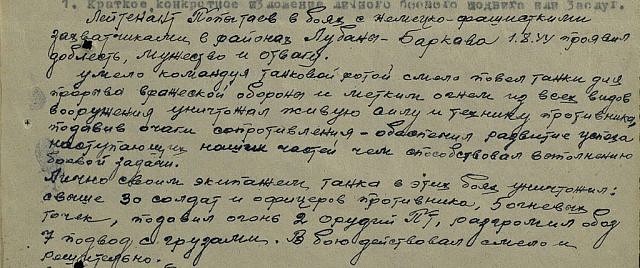 1. Краткое, конкретное изложение личного боевого подвига или заслуг.
Лейтенант Попытаев в боях с немецко-фашисткими
захватчиками в районах Лубаны-Баркава 1.8.44 проявил
доблесть, мужество и отвагу.
умело командуя танковой ротой смело повел танки для
прорыва вражеской обороны и метким огнем из всех видов
вооружения уничтожал живую силу и технику противника,
подавив очаги сопротивления - обеспечил развитие успеха
наступающих наших частей чем способствовал выполнению
боевой задачи.
Лично своим экипажем танка в этих боях уничтожил:
свыше 30 солдат и офицеров противника, 5 огневых
точек, подавил огонь 2 орудий ПТ, разгромил обоз
7 подвод с грузами. В бою действовал смело и
решительно.